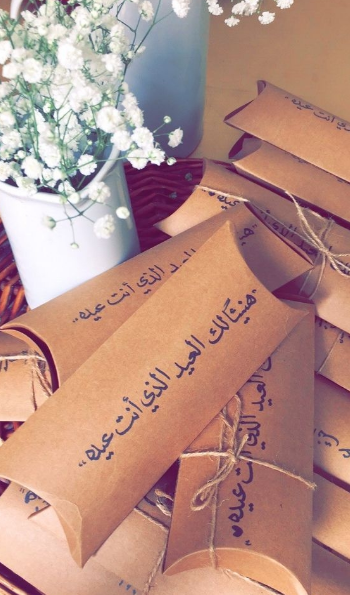 الذي أنت عيده"
"هنيئاً لك العيد الذي أنت عيده"
العيد الذي أنت عيده ♥